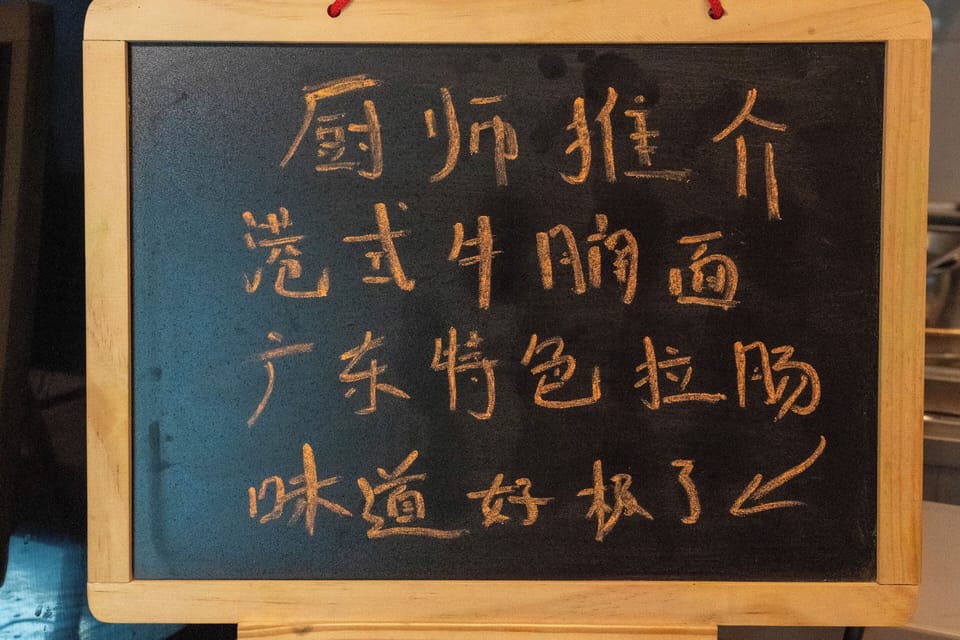 厨师推介
港式牛腩面
广东特色拉肠
味道好极了↙